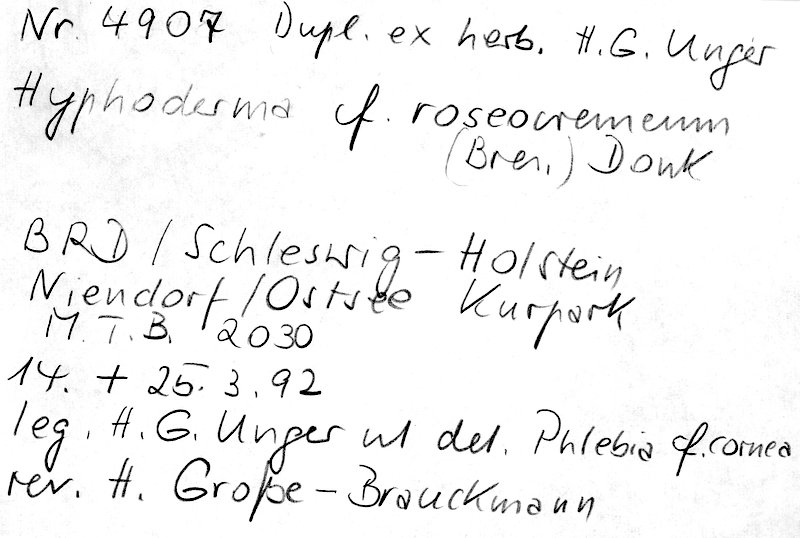 Nr. 4907 Dupl. ex herb. H.G. Unger
Hyphoderma cf. roseocremeum
(Bres.) Donk
BRD / Schleswig-Holstein
Niendorf/Ostsee Kurpark
M.T.B. 2030
14. + 25. 3. 92
leg. H.G. Unger ut det. Phlebia cf. cornea
rev. H. Große-Brauckmann